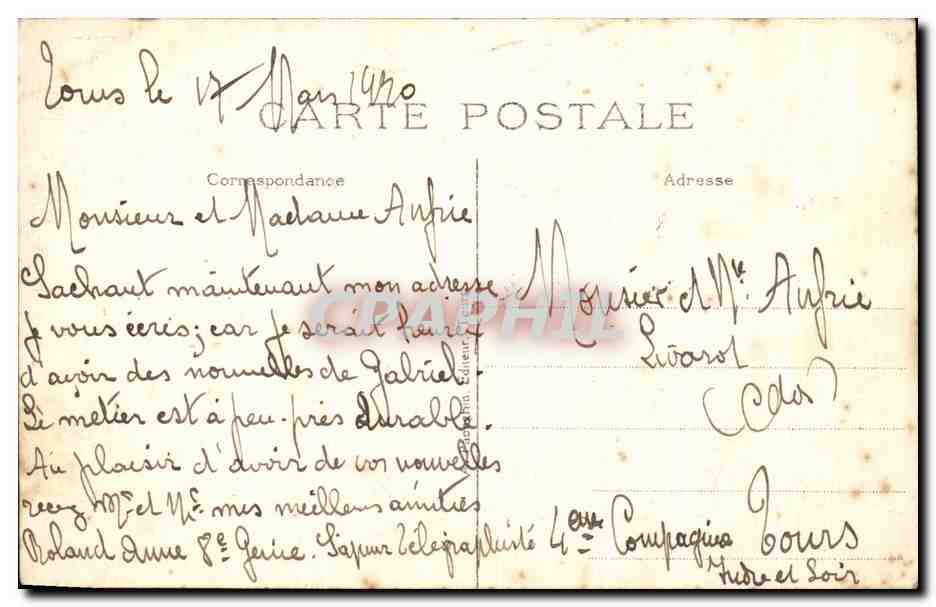 Tours le 17 Mars 1920
CARTE POSTALE
Correspondance
Monsieur et Madame Anfrie
Sachant maintenant mon adresse
Je vous écris; car je serait heureux
d'avoir des nouvelles de Gabriel.
Le métier est à peu-près durable.
Au plaisir d'avoir de vos nouvelles
recez Mr et Me mes meilleurs amitiés
Roland Anne 8e Genie. Sapeur télégraphiste 4eme Compagnie Tours
Indre et Loir
Adresse
Monsieur et Me Anfrie
Livarot
(Cdos)
Editeur, Tours
CPAPHIL